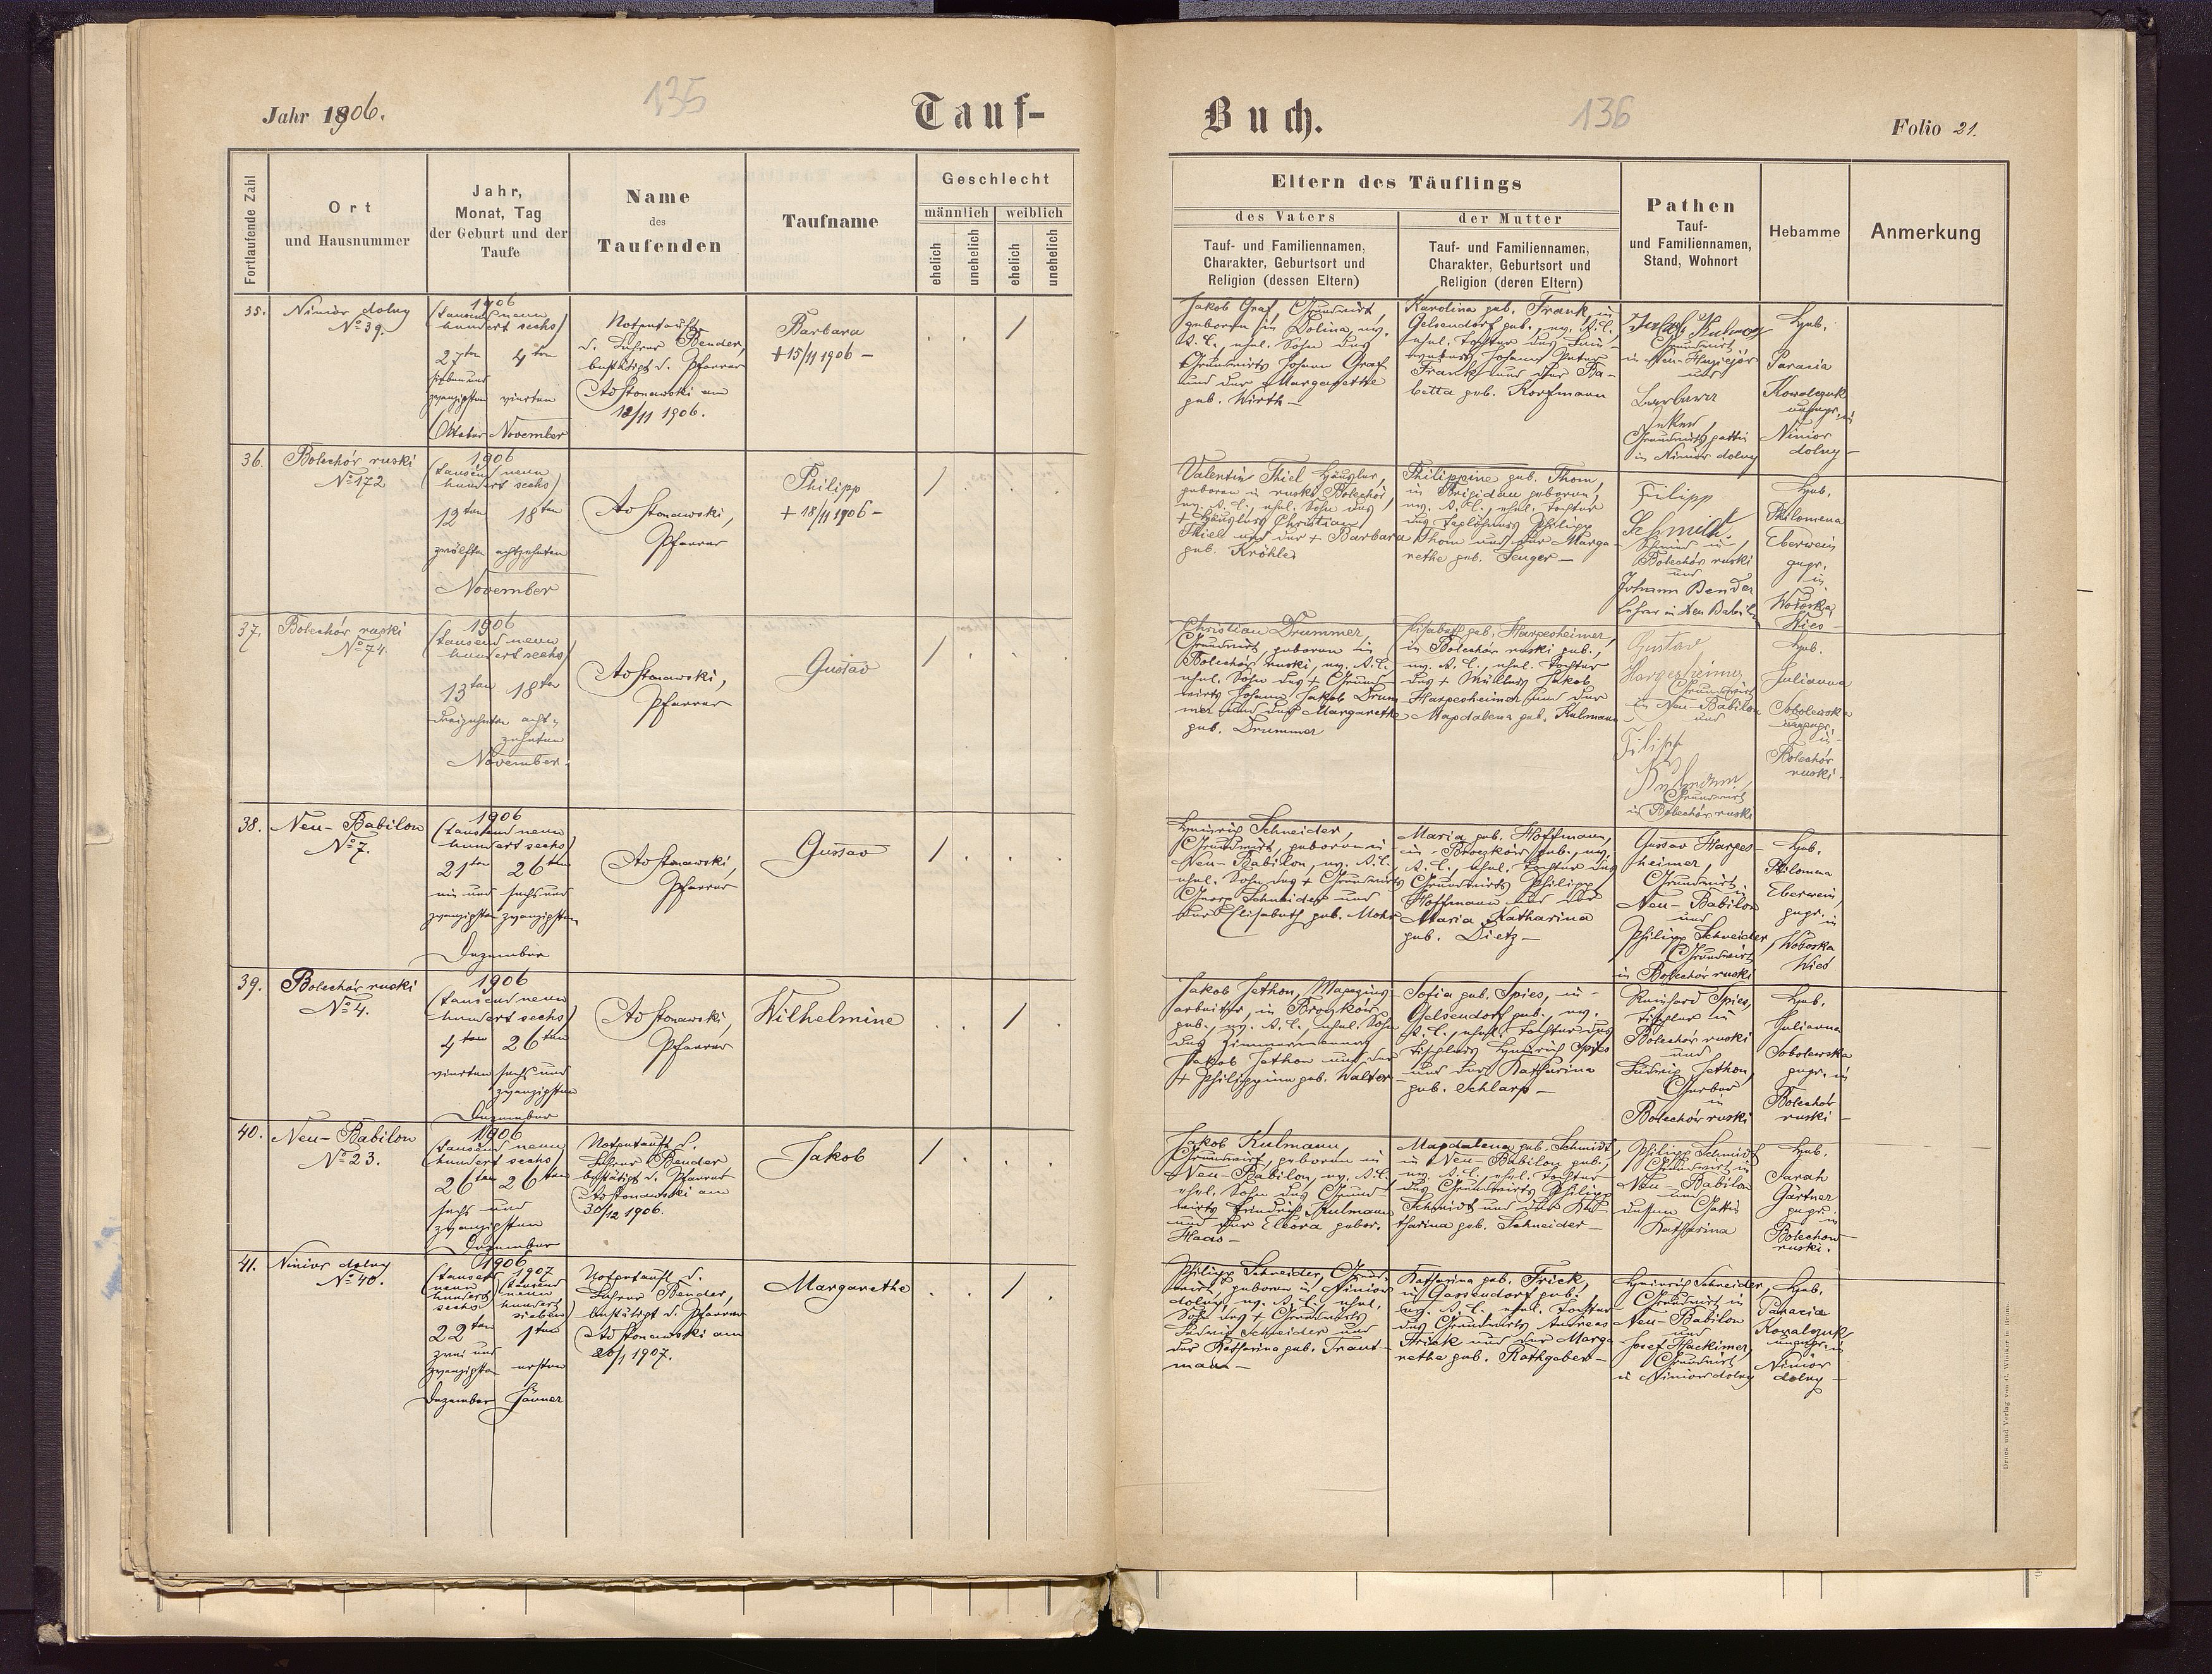 Jahr 1906.
135
Tauf-
Buch.
136
Folio 21.
Fortlaufende Zahl
Ort
und Hausnummer
Jahr,
Monat, Tag
der Geburt und der
Taufe
Name
des
Taufenden
Taufname
Geschlecht
männlich
weiblich
ehelich
unehelich
ehelich
unehelich
Eltern des Täuflings
des Vaters
der Mutter
Tauf- und Familiennamen,
Charakter, Geburtsort und
Religion (dessen Eltern)
Tauf- und Familiennamen,
Charakter, Geburtsort und
Religion (deren Eltern)
Pathen
Tauf-
und Familiennamen,
Stand, Wohnort
Hebamme
Anmerkung
35.
Niniów dolny
No 39.
1906
(tausend neun
hundert sechs)
27ten 4ten
sieben und
zwanzigsten vierten
Oktober November
Notgetauft
d. Lehrer Bender,
bestätigt d. Pfarrer
am
18/11 1906.
Barbara
+ 15/11 1906 -
/
Jakob Graf, Grundwirt,
geboren in Dolina, ev.
A. C., ehel. Sohn des
Grundwirts Johann Graf
und der Margarethe
geb. Wirth -
Karolina geb. Frank, in
Gelsendorf geb., ev. A. C.,
ehel. Tochter des
Johann Peter
Frank und der Ba-
betta geb. Korfmann
Jakob Kulman
Grundwirt
in
und
Barbara
Grundwirts gattin
in Niniów dolny
Heb.
Paracia
Kowalczuk
ungepr. in
Niniów
dolny -
36.
Bolechów ruski
No 172
1906
(tausend neun
hundert sechs)
12ten 18ten
zwölften achtzehnten
November
Pfarrer
Philipp
+ 18/11 1906 -
/
Valentin Thiel Häusler,
geboren in ruski Bolechów,
ev. A. C., ehel. Sohn des
+ Häuslers Christian
Thiel und der + Barbara
geb. Kröhler
Philippine geb. Thom,
in Brigidau geboren,
ev. A. C., ehel. Tochter
des Taglöhners Philipp
Thom und der Marga-
rethe geb. Senger -
Filipp
Schmidt
Schmied in
Bolechów ruski
und
Johann Bender
Lehrer in Neu Babilon
Heb.
Philomena
Eberwein
gepr.
in
Wołoska
Wies -
37.
Bolechów ruski
No 74.
1906
(tausend neun
hundert sechs)
13ten 18ten
dreizehnten acht-
zehnten
November
Pfarrer
Gustav
/
Christian Drummer,
Grundwirt, geboren in
Bolechów ruski, ev. A. C.
ehel. Sohn des + Grund-
wirts Johann Jakob Drum-
mer und der Margarethe
geb. Drummer
Elisabeth geb. Hargesheimer,
in Bolechów ruski geb.,
ev. A. C., ehel. Tochter
des + Müllers Jakob
Hargesheimer und der
Magdalena geb. Kulmann
Gustav
Hargesheimer
Grundwirt
in Neu-Babilon
und
Filipp
Grundwirt
in Bolechów ruski
Heb.
Julianna
Sobolewska
ungepr.
in
Bolechów
ruski -
38.
Neu-Babilon
No 7.
1906
(tausend neun
hundert sechs)
21ten 26ten
ein und sechs und
zwanzigsten zwanzigsten
Dezember
Pfarrer
Gustav
/
Heinrich Schneider,
Grundwirt, geboren in
Neu-Babilon, ev. A. C.
ehel. Sohn des + Grundwirts
Georg Schneider und
der Elisabeth geb. Mohr
Maria geb. Hoffmann,
in Broczków geb., ev.
A. C., ehel. Tochter des
Grundwirts Philipp
Hoffmann und der
Maria Katharina
geb. Dietz -
Gustav Harges-
heimer,
Grundwirt in
Neu-Babilon
und
Philipp Schneider,
Grundwirt
in Bolechów ruski
Heb.
Philomena
Eberwein,
gepr. in
Wołoska
Wies
39.
Bolechów ruski
No 4.
1906
(tausend neun
hundert sechs)
4ten 26ten
vierten sechs und
zwanzigsten
Dezember
Pfarrer
Wilhelmine
/
Jakob Jethon, Magazins-
arbeiter, in Broczków
geb., ev. A. C., ehel. Sohn
des Zimmermannes
Jakob Jethon und der
+ Philippine geb. Walter
Sofia geb. Spies, in
Gelsendorf geb., ev.
A. C., ehel. Tochter des
Tischlers Heinrich Spies
und der Katharina
geb. Schlarp -
Reinhard Spies,
Tischler in
Bolechów ruski
und
Ludwig Jethon,
Gerber
in
Bolechów ruski
Heb.
Julianna
Sobolewska
gepr. in
Bolechów
ruski -
40.
Neu-Babilon
No 23.
1906
(tausend neun
hundert sechs)
26ten 26ten
sechs und
zwanzigsten
Dezember
Notgetauft d.
Lehrer Bender
bestätigt d. Pfarrer
am
30/12 1906.
Jakob
/
Jakob Kulmann,
Grundwirt, geboren in
Neu-Babilon, ev. A. C.
ehel. Sohn des Grund-
wirts Friedrich Kulmann
und der Eleora gebor.
Haas -
Magdalena geb. Schmidt,
in Neu-Babilon geb.,
ev. A. C., ehel. Tochter
des Grundwirts Philipp
Schmidt und der Ka-
tharina geb. Schneider -
Philipp Schmidt
Grundwirt in
Neu-Babilon
und
dessen Gattin
Katharina
Heb.
Sarah
Gärtner
gepr.
in
Bolechow
ruski.
41.
Niniów dolny
No 40.
1906 1907
(tausend (tausend
neun neun
hundert hundert
sechs) sieben)
22ten 1ten
zwei und
zwanzigsten ersten
Dezember Jänner
Notgetauft d.
Lehrer Bender,
bestätigt d. Pfarrer
am
20/1 1907.
Margarethe
/
Philipp Schneider, Grund-
wirt, geboren in Niniów
dolny, ev. A. C. ehel.
Sohn des + Grundwirts
Ludwig Schneider und
der Katharina geb. Traut-
mann -
Katharina geb. Frick,
in Gassendorf geb.
ev. A. C. ehel. Tochter
des Grundwirts Andreas
Frick und der Marga-
rethe geb. Rathgeber -
Heinrich Schneider,
Grundwirt in
Neu-Babilon
und
Josef Hackimer,
Grundwirt
in Niniów dolny
Heb.
Paracia
Kowalczuk,
ungepr. in
Niniów
dolny -